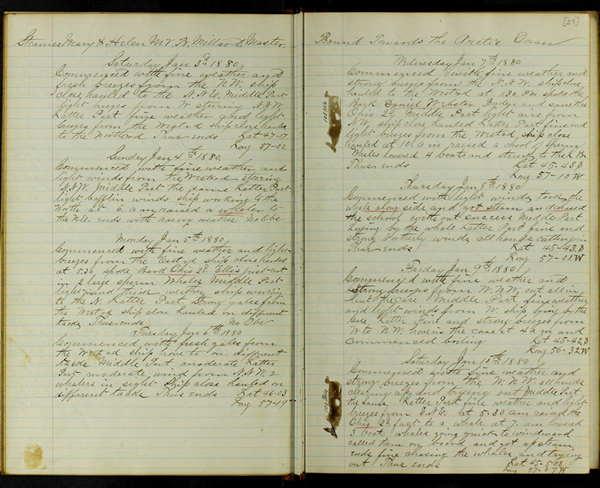 Steamer Mary & Helen M.V.B. Millard Master
Saturday Jan 3d 1880
Commenced with fine weather and
fresh breezes from the N.W. ship
close hauled to the N.E. Middle Part
light airs from W
Latter Part fine weather and light
breezes from the ship close hauled
to the Northard Thus ends Lat 47-17
Long 57-02
Sunday Jan 4th 1880
Commenced with fine weather and
light winds from
N.W. Middle Part the same Latter Part
light baffling winds ship working to the
North at 8 a.m. raised a
the N.E. ends with rainy weather No Obs
Monday Jan 5th 1880
Commenced with fine weather and light
breezes from the ship close hauled
at 5.30 spoke Bark Ohio 2d Ellis just cut
in a large sperm Whale Middle Part
light winds fine weather ship working
to the N. Latter Part Strong gales from
the West'd ship close hauled on different
tacks Thus ends No Obs
Tuesday Jan 6th 1880
Commenced with fresh gales from
the West'd ship hove to on different
tacks Middle Part moderate Latter
Part moderate wind from S.S.W. 2
whalers in sight Ship close hauled on
different tacks Thus ends Lat 46-03
Long 57-19
Bound Towards the Arctic Ocean
Wednesday Jan 7th 1880
Commenced with fine weather and
strong breezes from the N.W. ship close
hauled to the Westard at 1.30 spoke the
Bark Daniel Webster Dodge and saw the
Ohio 2d Middle Part light airs from
N.W. ship close hauled Latter Part fine and
light breezes from the Westard ship close
hauled at 10 a.m raised a school of Sperm
Whales lowered 4 boats and struck to the
Thus ends Lat 45-43 S
Long 57-10 W
Thursday Jan 8th 1880
Commenced with light winds took the
whale along side and got steam and chased
the school with out success Middle Part
Laying by the whale Latter Part fine and
Strong winds all hands cutting in
Thus ends Lat 45-42 S
Long 57-01 W
Friday Jan 9th 1880
Commenced with fine weather and
Strong breezes from W.N.W. cut all in
but the Middle Part fine weather
and light winds from W. ship going by the
Latter fine and Strong breezes from
W to N.W. took in the case at 4 a.m and
commenced boiling Lat 45-42 S
Long 56-32 W
Saturday Jan 10th 1880
Commenced with fine weather and
Strong breezes from the W.N.W. all hands
clearing up and trying out Middle Part
the same Latter Part fine weather and light
breezes from at 5.30 a.m raised the
Ohio 2d fast to a whale at 7 a.m lowered
3 boats whales going quick to windward
called them on board and got up steam
ends fine chasing the whales and trying
out Thus ends Lat 45-50 S
Long 57-47 W